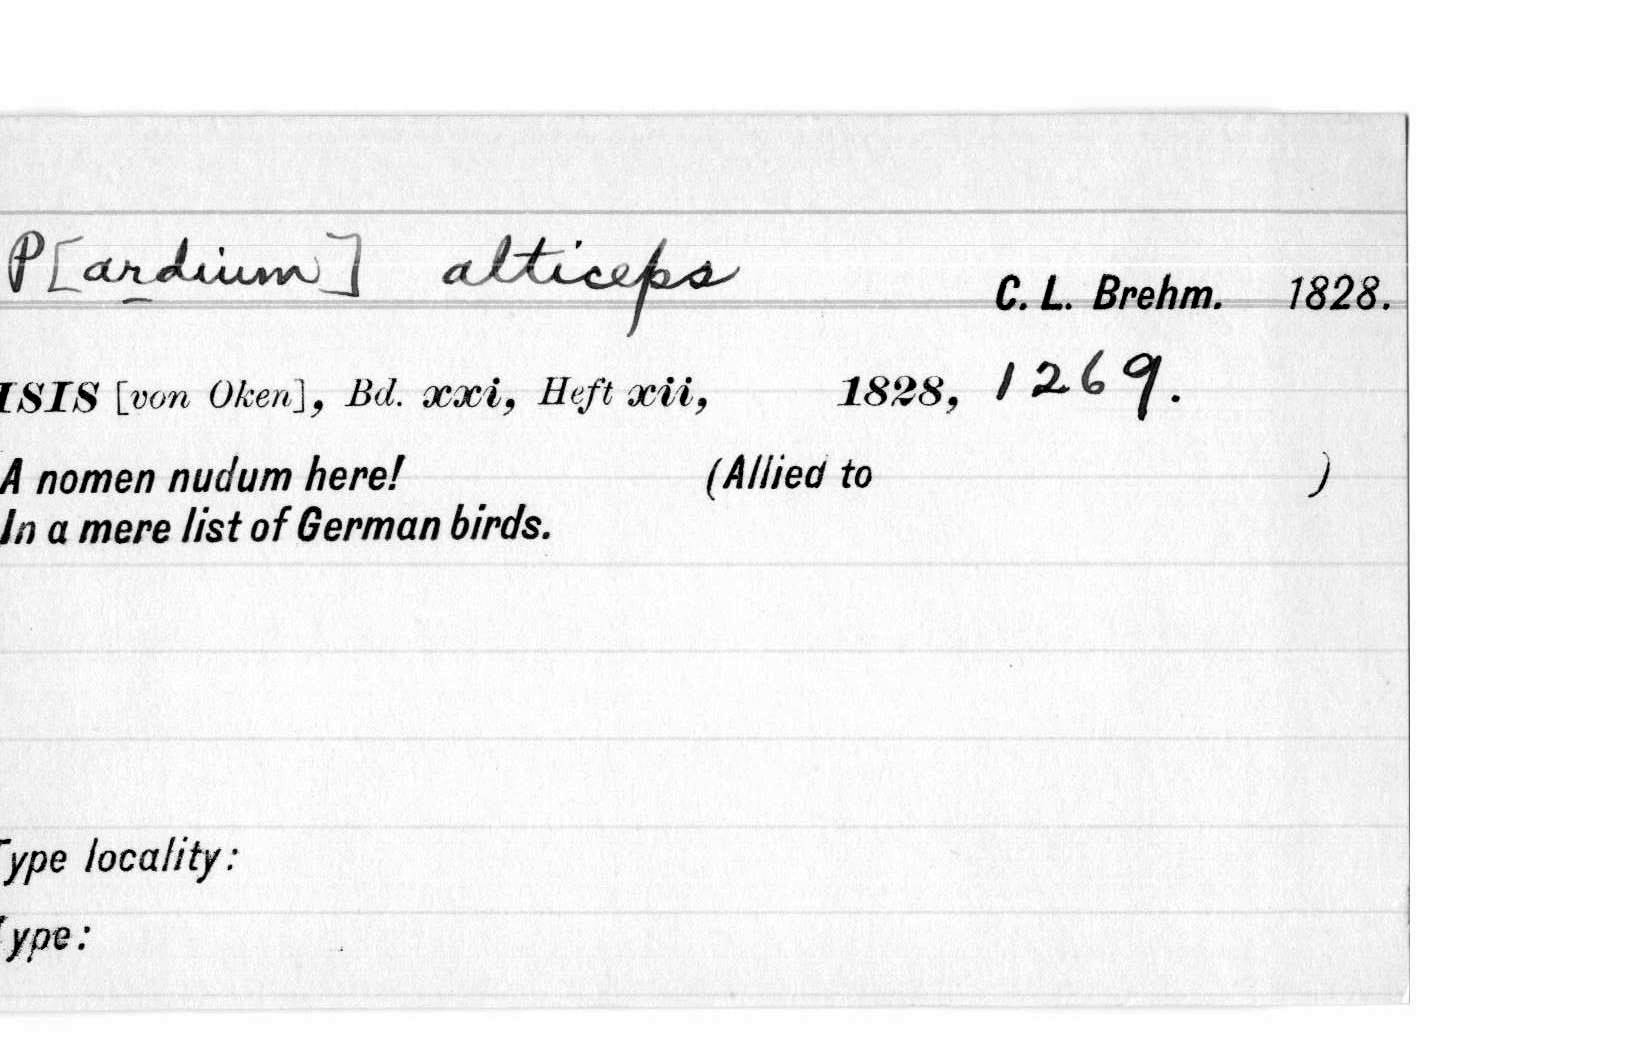 P[ardium] alticeps C. L. Brehm. 1828.
ISIS [von Oken], Bd. xxi, Heft xii, 1828, 1269.
A nomen nudum here! (Allied to )
In a mere list of German birds.
Type locality:
Type: